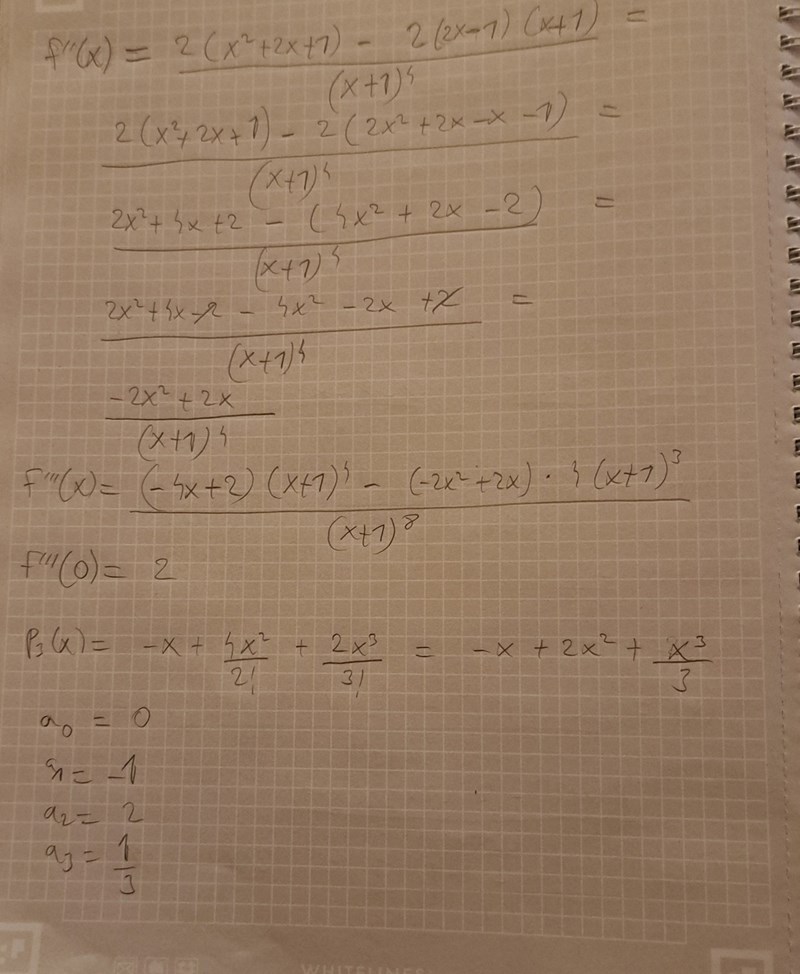 f''(x) = (2(x²+2x+1) - 2(2x-1)(x+1))/(x+1)⁴ =
(2(x²+2x+1) - 2(2x²+2x-x-1))/(x+1)⁴ =
(2x²+4x+2 - (4x²+2x-2))/(x+1)⁴ =
(2x²+4x-2 - 4x² -2x +2)/(x+1)⁴ =
(-2x²+2x)/(x+1)⁴
f'''(x) = ((-4x+2)(x+1)⁴ - (-2x²+2x)·4(x+1)³)/(x+1)⁸
f'''(0) = 2
P₃(x) = -x + 4x²/2! + 2x³/3! = -x + 2x² + x³/3
a₀ = 0
a₁ = -1
a₂ = 2
a₃ = 1/3
WHITELINES